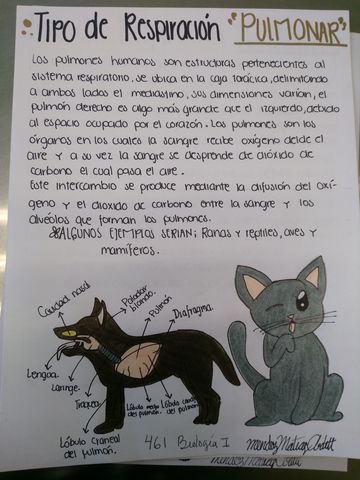 Tipo de Respiración "PULMONAR"
Los pulmones humanos son estructuras pertenecientes al
sistema respiratorio, se ubica en la caja torácica, delimitando
a ambos lados el mediastino, sus dimensiones varían, el
pulmón derecho es algo más grande que el izquierdo, debido
al espacio ocupado por el corazón. Los pulmones son los
órganos en los cuales la sangre recibe oxígeno desde el
aire y a su vez la sangre se desprende de dióxido de
carbono el cual pasa el aire.
Este intercambio se produce mediante la difusión del oxí-
geno y el dioxido de carbono entre la sangre y los
alvéolos que forman los pulmones.
*ALGUNOS EJEMPLOS SERIAN; Ranas y reptiles, aves y
mamíferos.
Cavidad nasal
Paladar
blando.
Pulmón
Diafragma.
Lengua.
Laringe.
Tráquea
Lóbulo medio
del pulmón.
Lóbulo caudal
del pulmón.
Lóbulo craneal
del pulmón.
461 Biología I